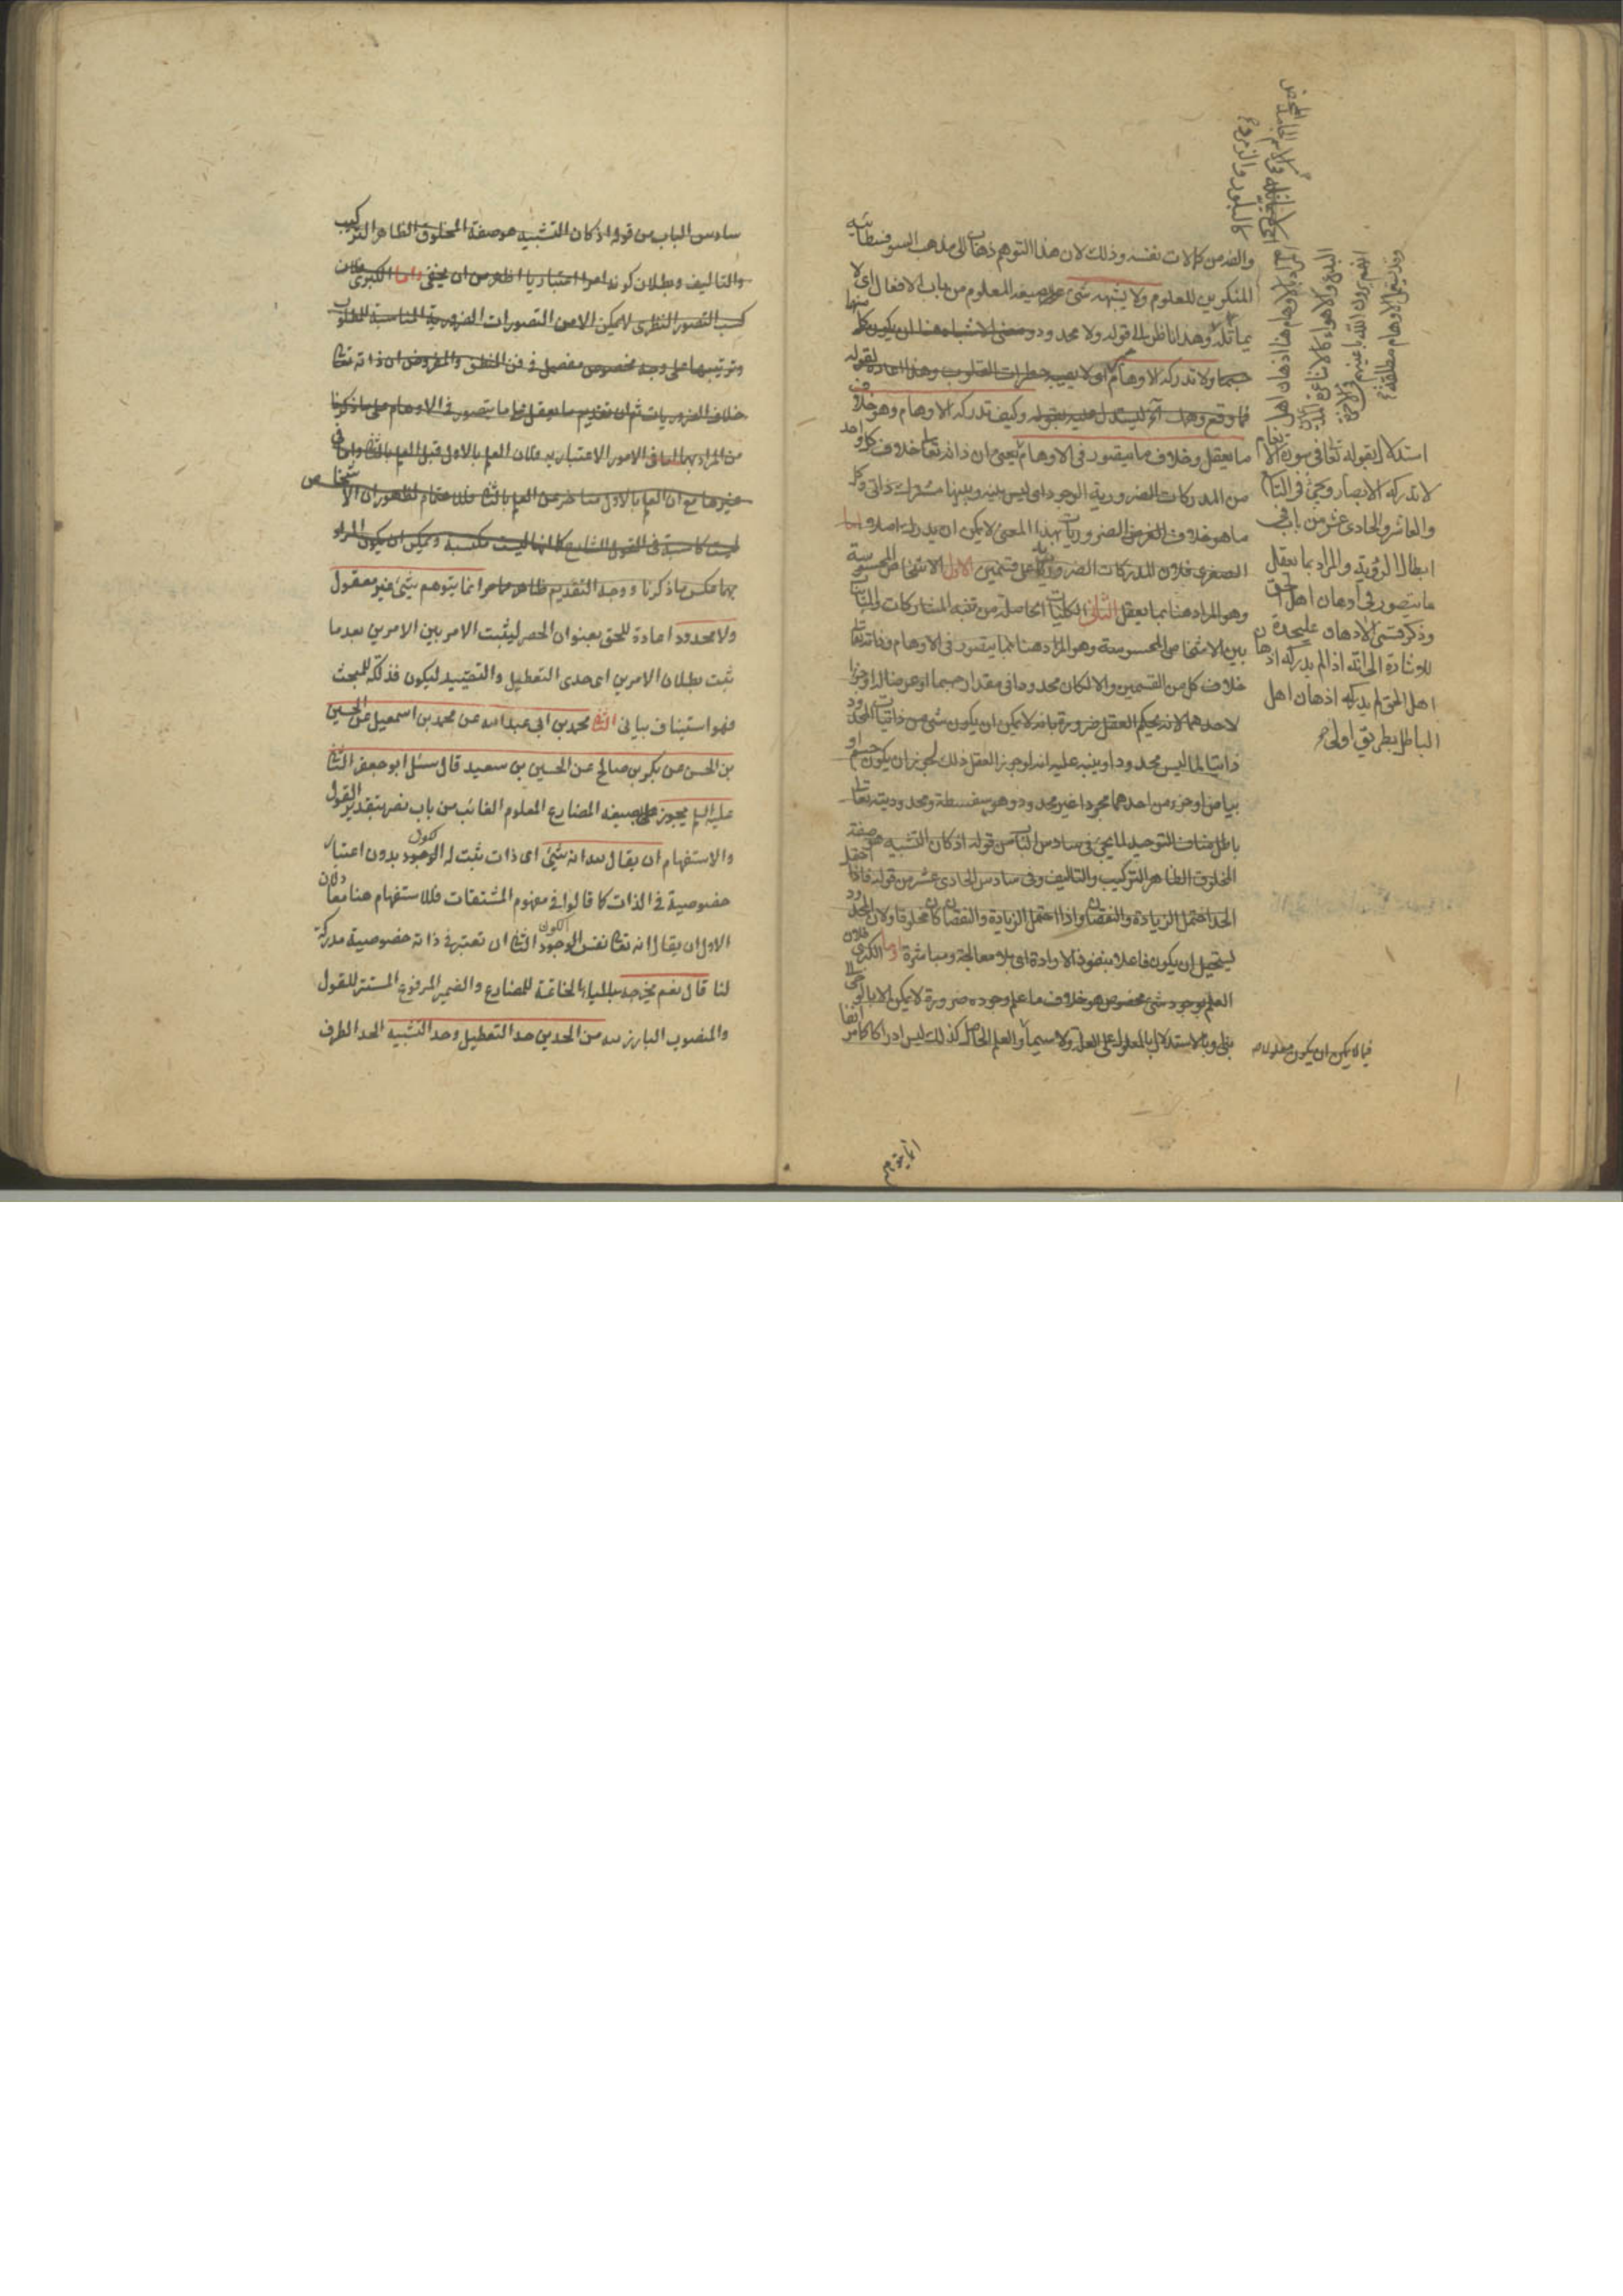 والضد من كمالات نفسه وذلك لان هذا التوهم ذهاب الى مذهب السوفسطائية
المنكرين للعلوم ولا يشبهه شئ على صيغة المعلوم من باب الافعال اى لا
يماثله وهذا ناظر الى قوله ولا محدود ومعنى الاشياء هنا ان يكون كل منها
جسما ولا تدركه الاوهام اى لا يصيبه خطرات القلوب وهذا اعادة لقوله
فما وقع وهمك آخر ليستدل عليه بقوله وكيف تدركه الاوهام وهو خلاف
ما يعقل وخلاف ما يتصور فى الاوهام يعنى ان ذاته تعا خلاف كل واحد
من المدركات الضرورية الوجود اى ليس بينه وبينها مشترك ذاتى وكل
ما هو خلاف الضروريات بهذا المعنى لا يمكن ان يدرك اصلا اما
الصغرى فلان المدركات الضرورية على قسمين الاول الاشخاص المحسوسة
وهو المراد هنا بما يعقل الثانى الكليات الحاصلة من تنبه المشاركات والمباينات
بين الاشخاص المحسوسة وهو المراد هنا بما يتصور فى الاوهام وذاته تعا
خلاف كل من القسمين والا لكان محدودا فى مقدار جسما او عرضا له او جزءا
لاحدهما لانه يحكم العقل ضرورة بانه لا يمكن ان يكون شئ من ذاتيات المحدود
ذاتيا لما ليس محدودا وينبه عليه انه لو جوز العقل ذلك لجوز ان يكون جسم او
بياض او جزء من احدهما مجردا غير محدود وهو سفسطة ومحدوديته تعا
باطل مناف التوحيد لما يجئ فى سادس الباب من قوله اذ كان التشبيه هو صفة
المخلوق الظاهر التركيب والتاليف وفى سادس الحادى عشر من قوله فاذا احتمل
الحد احتمل الزيادة والنقصان واذا احتمل الزيادة والنقصان كان مخلوقا ولان المحدود
يستحيل ان يكون فاعلا بنفوذ الارادة اى بلا معالجة ومباشرة واما الكبرى فلان
العلم بوجود شئ مخصوص هو خلاف ما علم وجوده ضرورة لا يمكن الا بالوحى
بنفى وبالاستدلال بالمعلول على العلة ولا سيما والعلم الحاصل كذلك ليس ادراكا كما مر انفا
استدلال بقوله تعا فى سورة الانعام
لا تدركه الابصار ويجئ فى التاسع
والعاشر والحادى عشر من باب فى
ابطال الرؤية والمراد بما يعقل
ما يتصور فى اذهان اهل الحق
وذكر قسمى الاذهان عليحدة
للاشارة الى انه اذا لم يدركه اذهان
اهل الحق لم يدركه اذهان اهل
الباطل بطريق اولى
المراد بالاوهام هنا اذهان اهل
البدع والاهواء
وقد يسمى الاوهام مطلقة
كالبلور والزمرد
فيما لا يمكن ان يكون معلولا
انما يتوهم
سادس الباب من قوله اذ كان التشبيه هو صفة المخلوق الظاهر التركيب
والتاليف وبطلان كونه امرا اعتباريا اظهر من ان يخفى واما الكبرى فلان
كسب التصور النظرى لا يمكن الا من التصورات الضرورية المناسبة للمطلوب
وترتيبها على وجه مخصوص مفصل فى فن المنطق والمفروض ان ذاته تعا
خلاف الضروريات ثم ان تقديم ما يعقل على ما يتصور فى الاوهام على ما ذكرنا
من المراد بهما اما فى الامور الاعتبارية فلان العلم بالاول قبل العلم بالثانى واما فى
غيرها مع ان العلم بالاول متاخر عن العلم بالثانى فللاهتمام لظهور ان الاشخاص
ليست كاسبة فى القول الشارح كما انها ليست مكتسبة ويمكن ان يكون المراد
بهما عكس ما ذكرنا ووجه التقديم ظاهر مما مر انما يتوهم شئ غير معقول
ولا محدود اعادة للحق بعنوان الحصر ليثبت الامر بين الامرين بعد ما
ثبت بطلان الامرين اى حدى التعطيل والتشبيه ليكون فذلكة للبحث
فهو استيناف بيانى الثانى محمد بن ابى عبد الله عن محمد بن اسمعيل عن الحسين
بن الحسن عن بكر بن صالح عن الحسين بن سعيد قال سئل ابو جعفر الثانى
عليه السلم يجوز على صيغة المضارع المعلوم الغائب من باب نصر بتقدير القول
والاستفهام ان يقال لله انه شئ اى ذات يثبت له الوجود بدون اعتبار
خصوصية فى الذات كما قالوا فى مفهوم المشتقات فللاستفهام هنا معان
الاول ان يقال انه تعا نفس الوجود الثانى ان تعتبر فى ذاته خصوصية مدركة
لنا قال نعم يخرجه بالياء الخاتمة للمضارع والضمير المرفوع المستتر للقول
والمنصوب البارز لله من الحدين حد التعطيل وحد التشبيه الحد الطرف